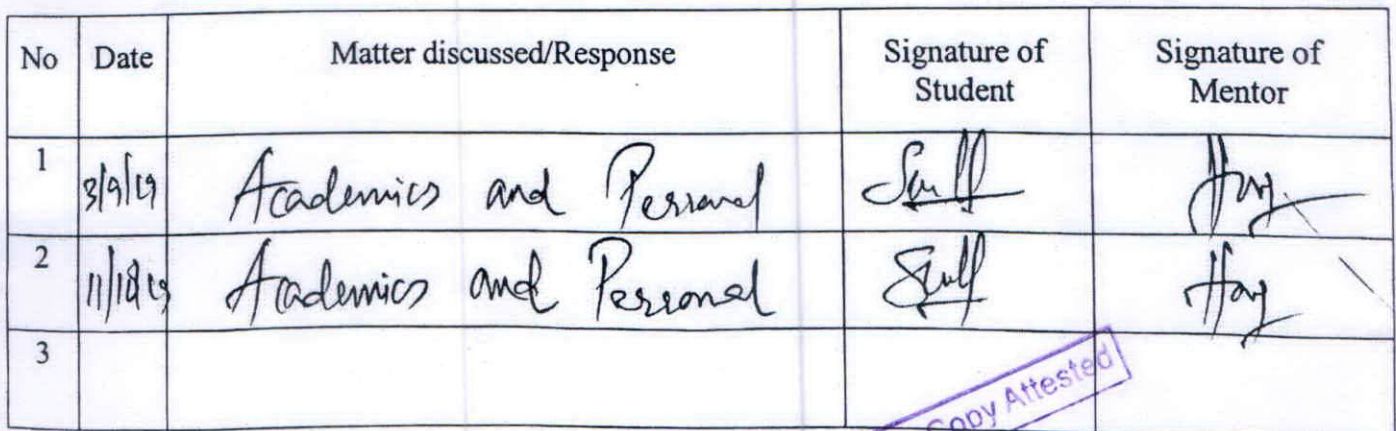 No Date Matter discussed/Response Signature of Student Signature of Mentor
1 3/9/19 Academics and Personal
2 Academics and Personal
3
Copy Attested